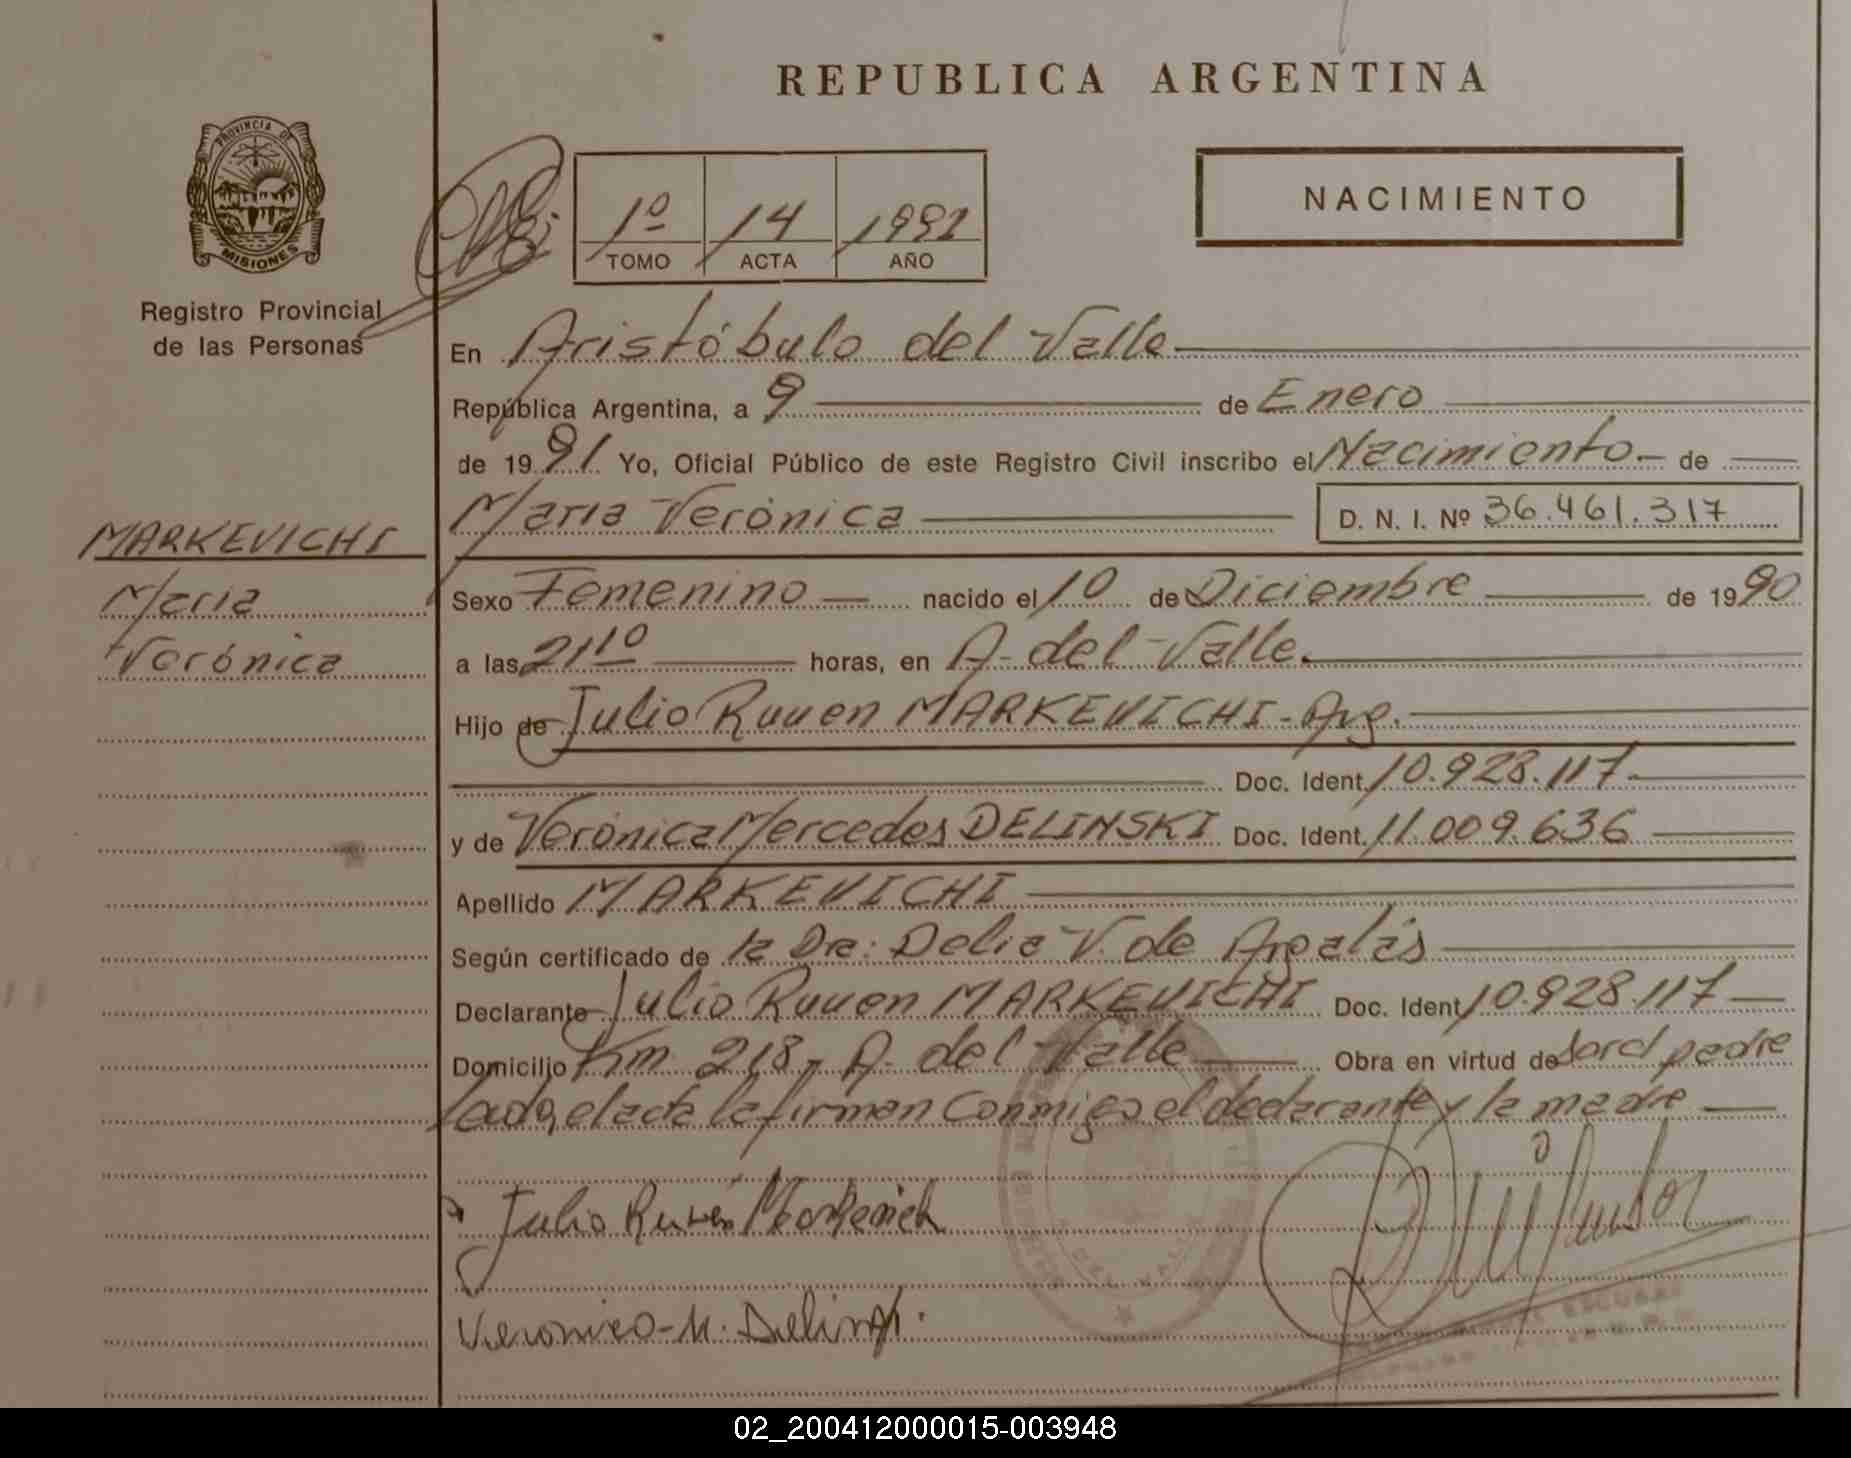 REPUBLICA ARGENTINA
PROVINCIA DE
MISIONES
Registro Provincial
de las Personas
1º 14 1991
TOMO ACTA AÑO
NACIMIENTO
En Aristóbulo del Valle
República Argentina, a 9 de Enero
de 1991 Yo, Oficial Público de este Registro Civil inscribo el Nacimiento de
María Verónica D. N. I. Nº 36.461.317
MARKEVICHI
María
Verónica
Sexo Femenino nacido el 10 de Diciembre de 1990
a las 21 10 horas, en A. del Valle.
Hijo de Julio Ruuen MARKEVICHI - Arg.
Doc. Ident. 10.928.117
y de Verónica Mercedes DELINSKI Doc. Ident. 11.009.636
Apellido MARKEVICHI
Según certificado de la Dra: Delia V. de Argalás
Declarante Julio Ruuen MARKEVICHI Doc. Ident. 10.928.117
Domicilio Km. 218 - A. del Valle Obra en virtud de padre
el acta la firman Conmigo el declarante y la madre
Julio Rubén
Veronica M.
02_200412000015-003948